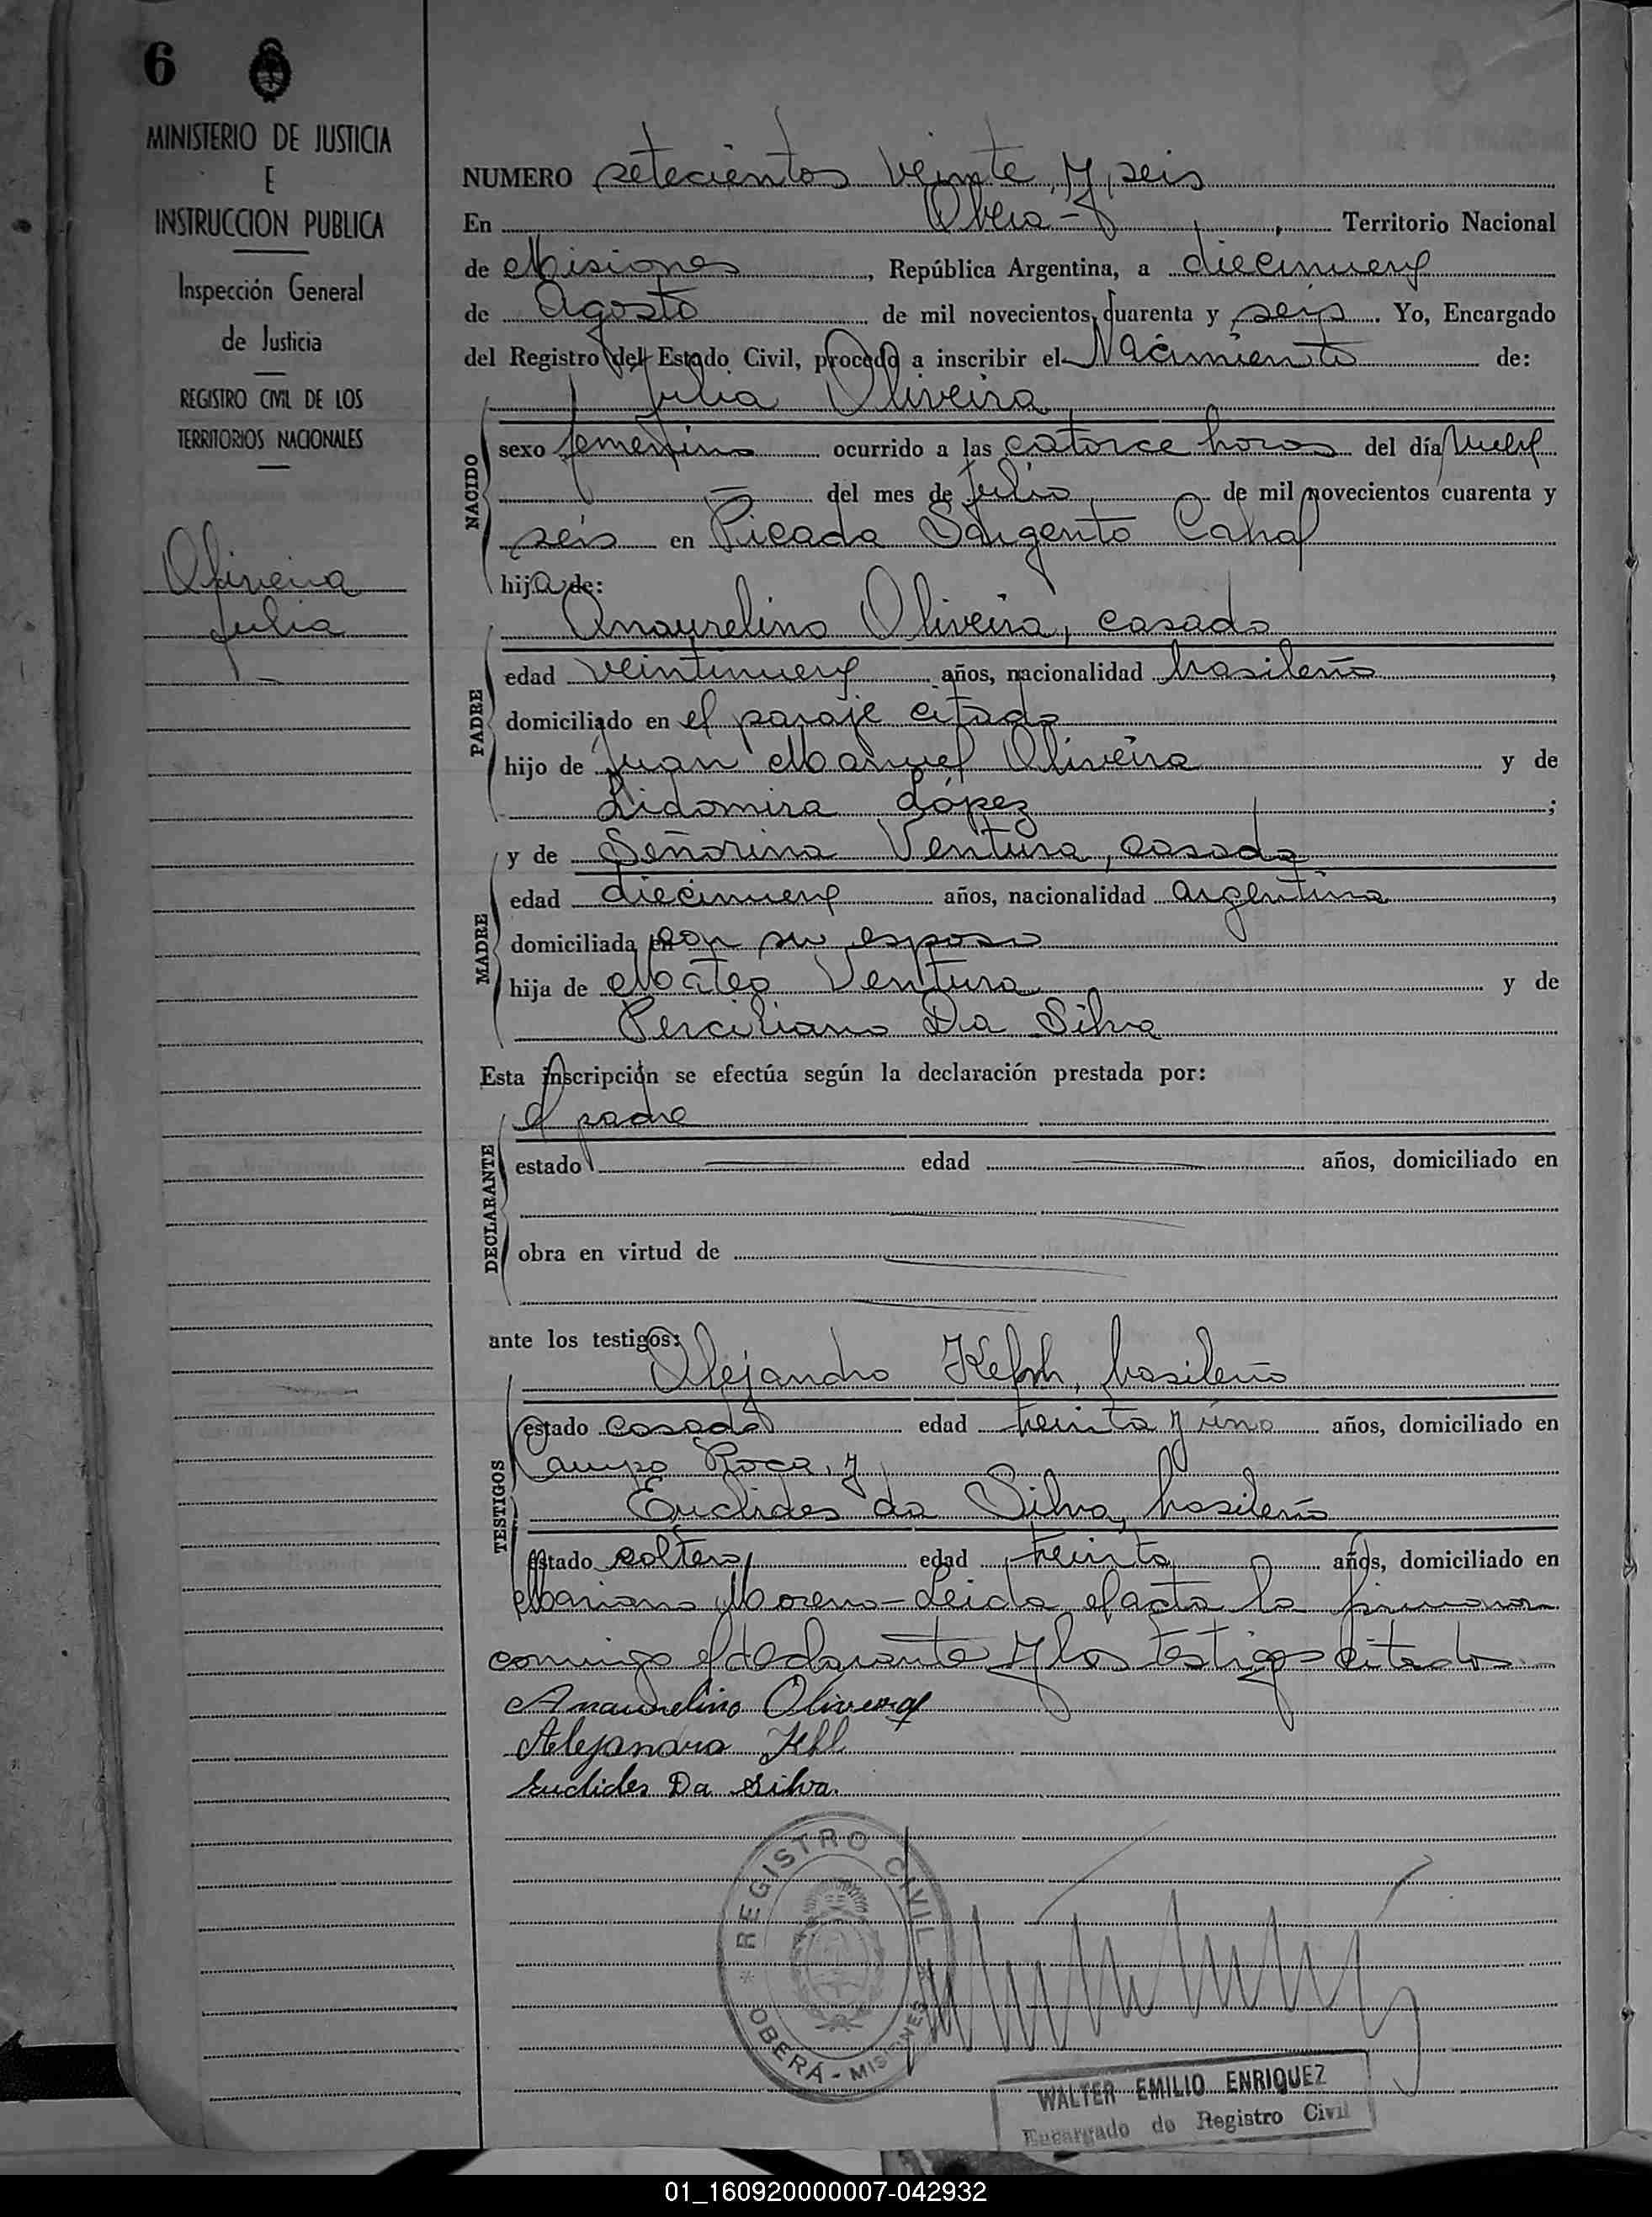 6
MINISTERIO DE JUSTICIA
E
INSTRUCCION PUBLICA
Inspección General
de Justicia
REGISTRO CIVIL DE LOS
TERRITORIOS NACIONALES
Oliveira
Julia
NUMERO setecientos veinte y seis
En Oberá - , Territorio Nacional
de Misiones , República Argentina, a diecinueve
de Agosto de mil novecientos cuarenta y seis. Yo, Encargado
del Registro del Estado Civil, procedo a inscribir el Nacimiento de:
Julia Oliveira
NACIDO
sexo femenino ocurrido a las catorce horas del día nueve
— del mes de Julio de mil novecientos cuarenta y
seis en Picada Sargento Cabral
hija de:
Anaurelino Oliveira, casado
PADRE
edad veintinueve años, nacionalidad brasileño,
domiciliado en el paraje citado
hijo de Juan Manuel Oliveira y de
Lidomira López ;
MADRE
y de Señorina Ventura, casada
edad diecinueve años, nacionalidad argentina,
domiciliada en con su esposo
hija de Mateo Ventura y de
Perciliana Da Silva
Esta inscripción se efectúa según la declaración prestada por:
el padre
DECLARANTE
estado — edad — años, domiciliado en
obra en virtud de
ante los testigos:
Alejandro , brasileño
TESTIGOS
estado casado edad treinta y uno años, domiciliado en
Campo Roca, y
Euclides da Silva, brasileño
estado soltero, edad treinta años, domiciliado en
Mariano Moreno - Leida el acta la firmaron
conmigo el declarante y los testigos citados.
Anaurelino Oliveira
Alejandro
Euclides Da Silva.
REGISTRO CIVIL
* OBERÁ - MISIONES *
WALTER EMILIO ENRIQUEZ
Encargado de Registro Civil
01_160920000007-042932